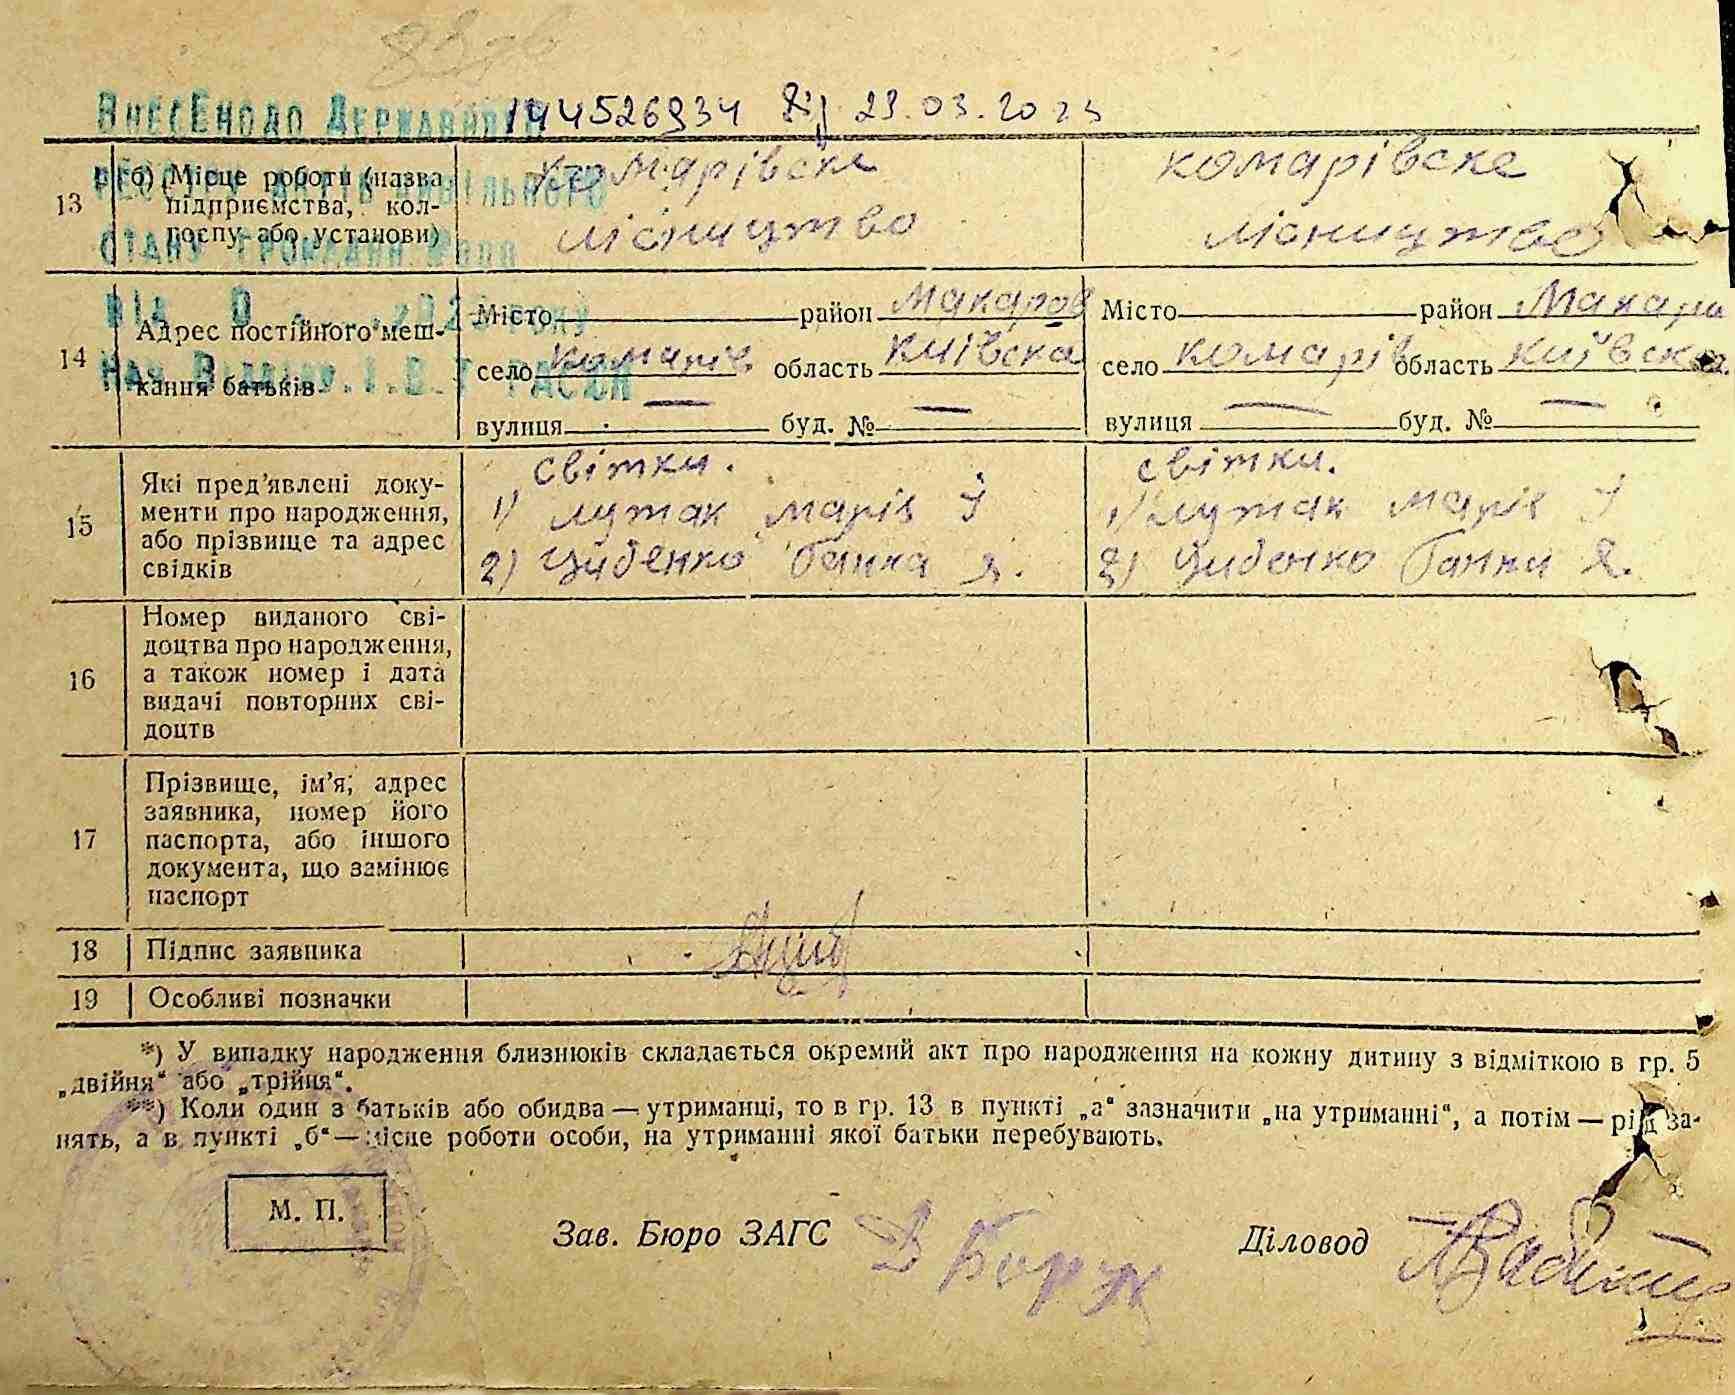 Внесено до Державного 144526934 від 23.03.2023
реєстру актів цивільного
стану громадян
13 б) Місце роботи (назва підприємства, колгоспу або установи) комарівске комарівске
лісництво лісництво
14 Адрес постійного мешкання батьків
Місто район Макаров Місто район Макари
село комарів область київска село комарів область київска
вулиця — буд. № — вулиця — буд. № —
15 Які пред’явлені документи про народження, або прізвище та адрес свідків
світки. світки.
1) лутак марія 1) лутак марія
2) Циденко ганна я. 2) Циденко ганни я.
16 Номер виданого сві-
доцтва про народження,
а також номер і дата
видачі повторних сві-
доцтв
17 Прізвище, ім’я, адрес
заявника, номер його
паспорта, або іншого
документа, що замінює
паспорт
18 Підпис заявника
19 Особливі позначки
*) У випадку народження близнюків складається окремий акт про народження на кожну дитину з відміткою в гр. 5
„двійня“ або „трійня“.
**) Коли один з батьків або обидва — утриманці, то в гр. 13 в пункті „а“ зазначити „на утриманні“, а потім — рід за-
нять, а в пункті „б“ — місце роботи особи, на утриманні якої батьки перебувають.
М. П.
Зав. Бюро ЗАГС Діловод